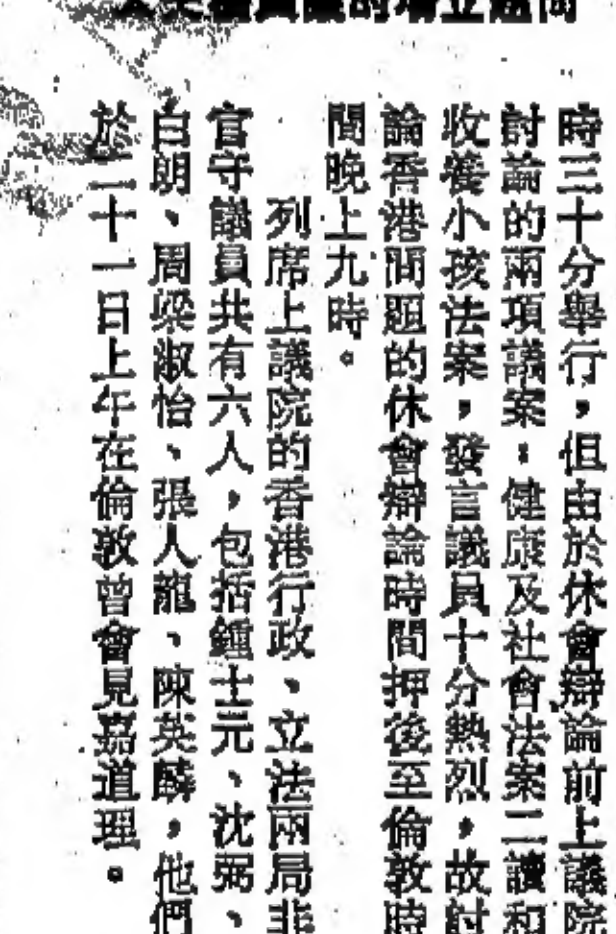 時三十分舉行，但由於休會辯論前上議院
討論的兩項議案：健康及社會法案二讀和
收養小孩法案，發言議員十分熱烈，故討
論香港問題的休會辯論時間押後至倫敦時
間晚上九時。
列席上議院的香港行政、立法兩局非
官守議員共有六人，包括鍾士元、沈弼、
白朗、周梁淑怡、張人龍、陳英麟，他們
於二十一日上午在倫敦曾會見嘉道理。